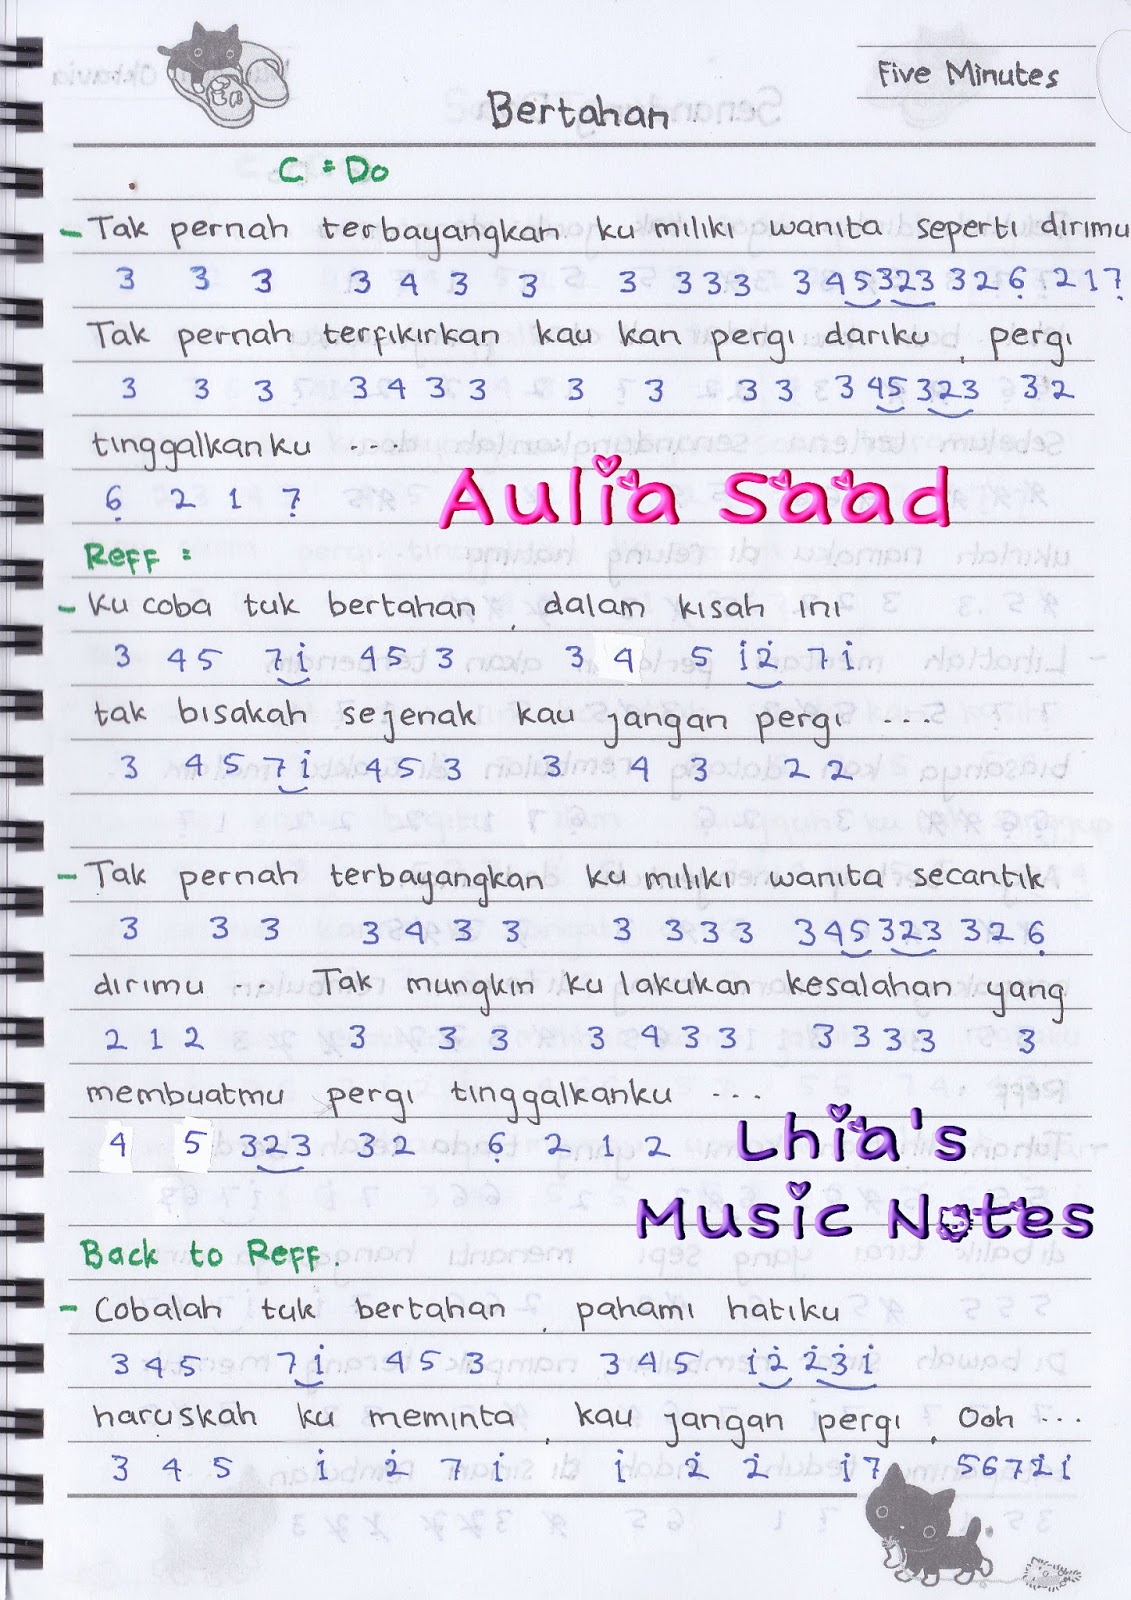 Five Minutes
Bertahan
C = Do
- Tak pernah terbayangkan ku miliki wanita seperti dirimu
3 3 3 3 4 3 3 3 3 3 3 3 4 5 3 2 3 3 2 6̣ 2 1 7̣
Tak pernah terfikirkan kau kan pergi dariku , pergi
3 3 3 3 4 3 3 3 3 3 3 3 4 5 3 2 3 3 2
tinggalkanku ....
6̣ 2 1 7̣
Aulia Saad
Reff :
- Ku coba tuk bertahan , dalam kisah ini
3 4 5 7 1̇ 4 5 3 3 4 5 1̇ 2̇ 7 1̇
tak bisakah sejenak kau jangan pergi ...
3 4 5 7 1̇ 4 5 3 3 4 3 2 2
- Tak pernah terbayangkan ku miliki wanita secantik
3 3 3 3 4 3 3 3 3 3 3 3 4 5 3 2 3 3 2 6̣
dirimu ... Tak mungkin ku lakukan kesalahan yang
2 1 2 3 3 3 3 4 3 3 3 3 3 3 3
membuatmu pergi tinggalkanku ...
4 5 3 2 3 3 2 6̣ 2 1 2
Lhia's
Music Notes
Back to Reff.
- Cobalah tuk bertahan , pahami hatiku
3 4 5 7 1̇ 4 5 3 3 4 5 1̇ 2̇ 2̇ 3̇ 1̇
haruskah ku meminta , kau jangan pergi , Ooh ...
3 4 5 1̇ 2̇ 7 1̇ 1̇ 2̇ 2̇ 1̇ 7 5 6 7 2̇ 1̇